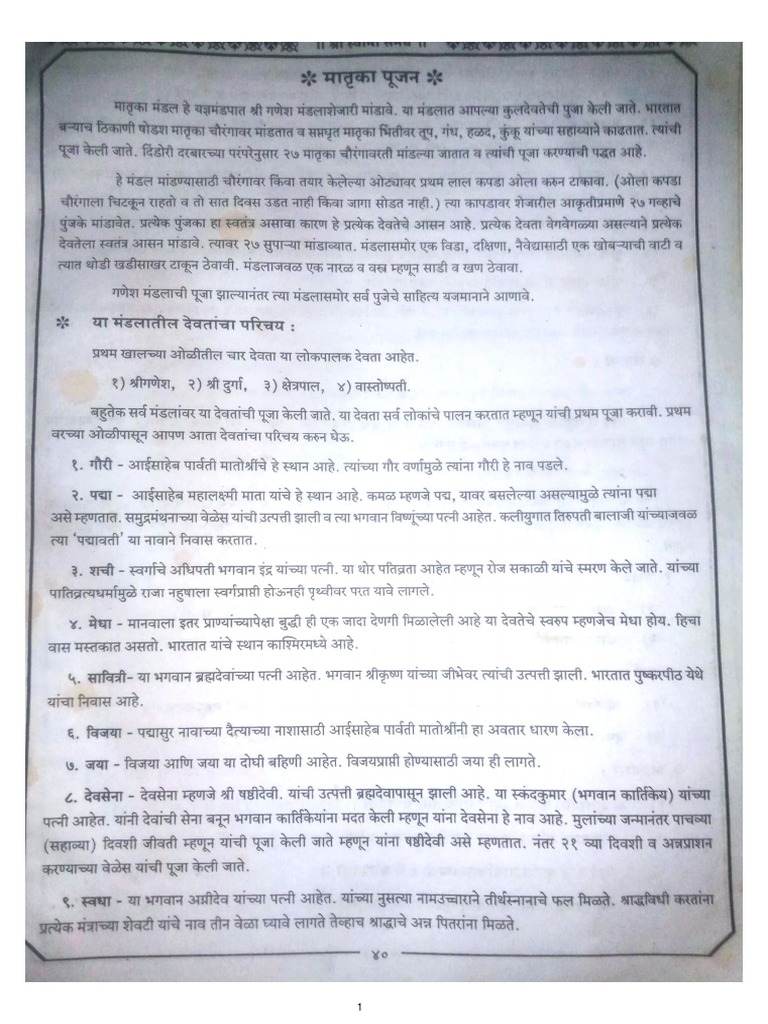 ।। श्री स्वामी समर्थ ।।
❊ मातृका पूजन ❊
मातृका मंडल हे यज्ञमंडपात श्री गणेश मंडलाशेजारी मांडावे. या मंडलात आपल्या कुलदेवतेची पुजा केली जाते. भारतात
बऱ्याच ठिकाणी षोडश मातृका चौरंगावर मांडतात व सप्तघृत मातृका भिंतीवर तूप, गंध, हळद, कुंकू यांच्या सहाय्याने काढतात. त्यांची
पूजा केली जाते. दिंडोरी दरबारच्या परंपरेनुसार २७ मातृका चौरंगावरती मांडल्या जातात व त्यांची पूजा करण्याची पद्धत आहे.
हे मंडल मांडण्यासाठी चौरंगावर किंवा तयार केलेल्या ओट्यावर प्रथम लाल कपडा ओला करुन टाकावा. (ओला कपडा
चौरंगाला चिटकून राहतो व तो सात दिवस उडत नाही किंवा जागा सोडत नाही.) त्या कापडावर शेजारील आकृतीप्रमाणे २७ गव्हाचे
पुंजके मांडावेत. प्रत्येक पुंजका हा स्वतंत्र असावा कारण हे प्रत्येक देवतेचे आसन आहे. प्रत्येक देवता वेगवेगळ्या असल्याने प्रत्येक
देवतेला स्वतंत्र आसन मांडावे. त्यावर २७ सुपाऱ्या मांडाव्यात. मंडलासमोर एक विडा, दक्षिणा, नैवेद्यासाठी एक खोबऱ्याची वाटी व
त्यात थोडी खडीसाखर टाकून ठेवावी. मंडलाजवळ एक नारळ व वस्त्र म्हणून साडी व खण ठेवावा.
गणेश मंडलाची पूजा झाल्यानंतर त्या मंडलासमोर सर्व पुजेचे साहित्य यजमानाने आणावे.
❊ या मंडलातील देवतांचा परिचय :
प्रथम खालच्या ओळीतील चार देवता या लोकपालक देवता आहेत.
१) श्रीगणेश, २) श्री दुर्गा, ३) क्षेत्रपाल, ४) वास्तोष्पती.
बहुतेक सर्व मंडलांवर या देवतांची पूजा केली जाते. या देवता सर्व लोकांचे पालन करतात म्हणून यांची प्रथम पूजा करावी. प्रथम
वरच्या ओळीपासून आपण आता देवतांचा परिचय करुन घेऊ.
१. गौरी - आईसाहेब पार्वती मातोश्रींचे हे स्थान आहे. त्यांच्या गौर वर्णामुळे त्यांना गौरी हे नाव पडले.
२. पद्मा - आईसाहेब महालक्ष्मी माता यांचे हे स्थान आहे. कमळ म्हणजे पद्म, यावर बसलेल्या असल्यामुळे त्यांना पद्मा
असे म्हणतात. समुद्रमंथनाच्या वेळेस यांची उत्पत्ती झाली व त्या भगवान विष्णूंच्या पत्नी आहेत. कलीयुगात तिरुपती बालाजी यांच्याजवळ
त्या 'पद्मावती' या नावाने निवास करतात.
३. शची - स्वर्गाचे अधिपती भगवान इंद्र यांच्या पत्नी. या थोर पतिव्रता आहेत म्हणून रोज सकाळी यांचे स्मरण केले जाते. यांच्या
पातिव्रत्यधर्मामुळे राजा नहुषाला स्वर्गप्राप्ती होऊनही पृथ्वीवर परत यावे लागले.
४. मेधा - मानवाला इतर प्राण्यांच्यापेक्षा बुद्धी ही एक जादा देणगी मिळालेली आहे या देवतेचे स्वरुप म्हणजेच मेधा होय. हिचा
वास मस्तकात असतो. भारतात यांचे स्थान काश्मिरमध्ये आहे.
५. सावित्री- या भगवान ब्रह्मदेवांच्या पत्नी आहेत. भगवान श्रीकृष्ण यांच्या जीभेवर त्यांची उत्पत्ती झाली. भारतात पुष्करपीठ येथे
यांचा निवास आहे.
६. विजया - पद्मासुर नावाच्या दैत्याच्या नाशासाठी आईसाहेब पार्वती मातोश्रींनी हा अवतार धारण केला.
७. जया - विजया आणि जया या दोघी बहिणी आहेत. विजयप्राप्ती होण्यासाठी जया ही लागते.
८. देवसेना - देवसेना म्हणजे श्री षष्ठीदेवी. यांची उत्पत्ती ब्रह्मदेवापासून झाली आहे. या स्कंदकुमार (भगवान कार्तिकेय) यांच्या
पत्नी आहेत. यांनी देवांची सेना बनून भगवान कार्तिकेयांना मदत केली म्हणून यांना देवसेना हे नाव आहे. मुलांच्या जन्मानंतर पाचव्या
(सहाव्या) दिवशी जीवती म्हणून यांची पूजा केली जाते म्हणून यांना षष्ठीदेवी असे म्हणतात. नंतर २१ व्या दिवशी व अन्नप्राशन
करण्याच्या वेळेस यांची पूजा केली जाते.
९. स्वधा - या भगवान अग्नीदेव यांच्या पत्नी आहेत. यांच्या नुसत्या नामउच्चाराने तीर्थस्नानाचे फल मिळते. श्राद्धविधी करतांना
प्रत्येक मंत्राच्या शेवटी यांचे नाव तीन वेळा घ्यावे लागते तेव्हाच श्राद्धाचे अन्न पितरांना मिळते.
४०
1